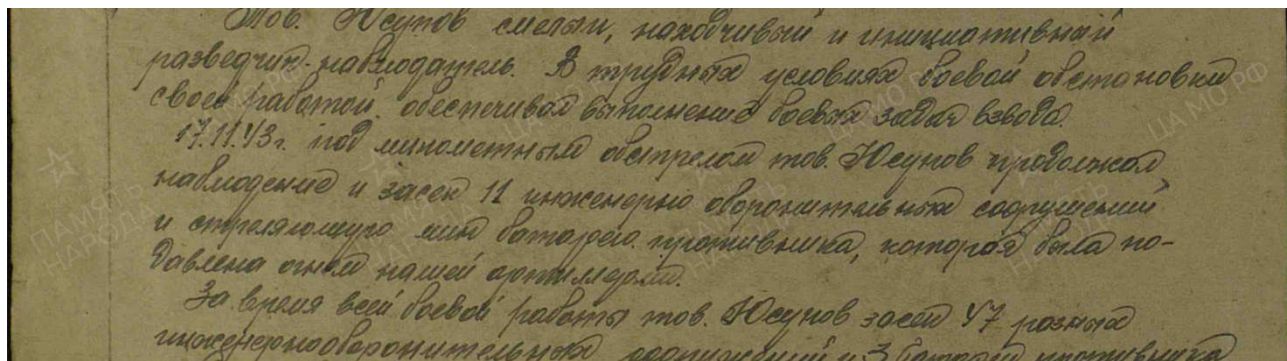 Тов. Юсупов смелый, находчивый и инициативный
разведчик-наблюдатель. В трудных условиях боевой обстановки
своей работой обеспечивал выполнение боевых задач взвода.
17.11.43 г. под минометным обстрелом тов. Юсупов продолжал
наблюдение и засек 11 инженерно оборонительных сооружений
и стреляющую мин батарею противника, которая была по-
давлена огнем нашей артиллерии.
За время всей боевой работы тов. Юсупов засек 47 разных
инженернооборонительных сооружений и 3 батареи противника
ПАМЯТЬ НАРОДА
ЦА МО РФ